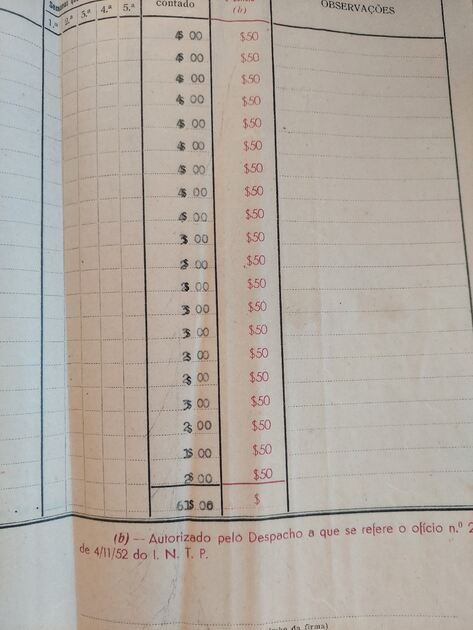 Semanal
contado
(b)
OBSERVAÇÕES
1.ª 2.ª 3.ª 4.ª 5.ª
4$00 $50
4$00 $50
4$00 $50
4$00 $50
4$00 $50
4$00 $50
4$00 $50
4$00 $50
4$00 $50
3$00 $50
2$00 $50
3$00 $50
3$00 $50
3$00 $50
2$00 $50
2$00 $50
3$00 $50
2$00 $50
1$00 $50
2$00 $50
61$00 $
(b) — Autorizado pelo Despacho a que se refere o ofício n.º 2
de 4/11/52 do I. N. T. P.
da firma)